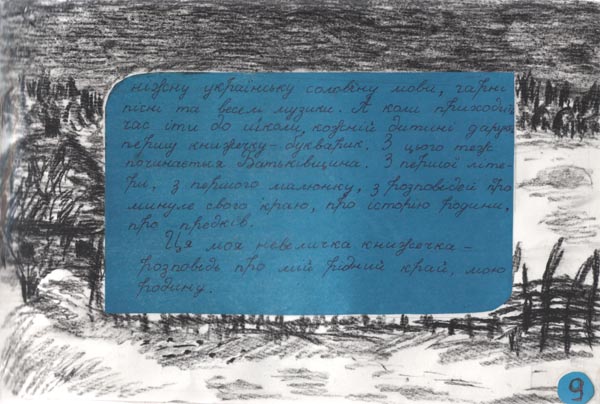 ніжну українську солов'їну мови, гарні
пісні та веселі музики. А коли приходить
час іти до школи, кожній дитині дарують
першу книжечку - букварик. З цього теж
починається Батьківщина. З першої літе-
ри, з першого малюнку, з розповідей про
минуле свого краю, про історію родини,
про предків.
Ця моя невеличка книжечка -
розповідь про мій рідний край, мою
родину.
9